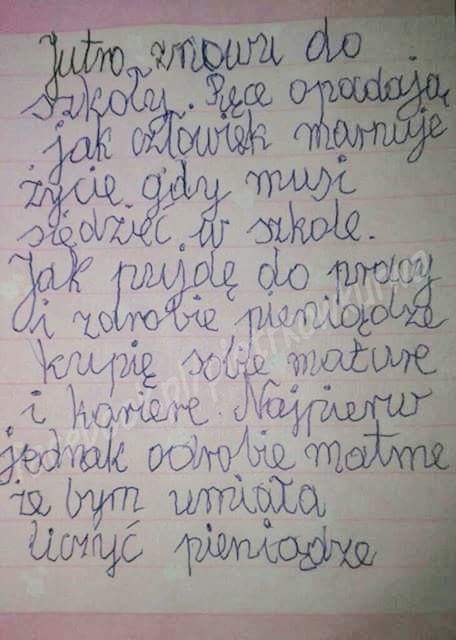 Jutro znowu do
szkoły. Ręce opadają
jak człowiek marnuje
życie gdy musi
siędzieć w szkole.
Jak prijdę do pracy
i zdrobie pieniądze
kupię sobie mature
i kariere. Najpierw
jednak odrobie matme
że bym umiała
liczyć pieniądze